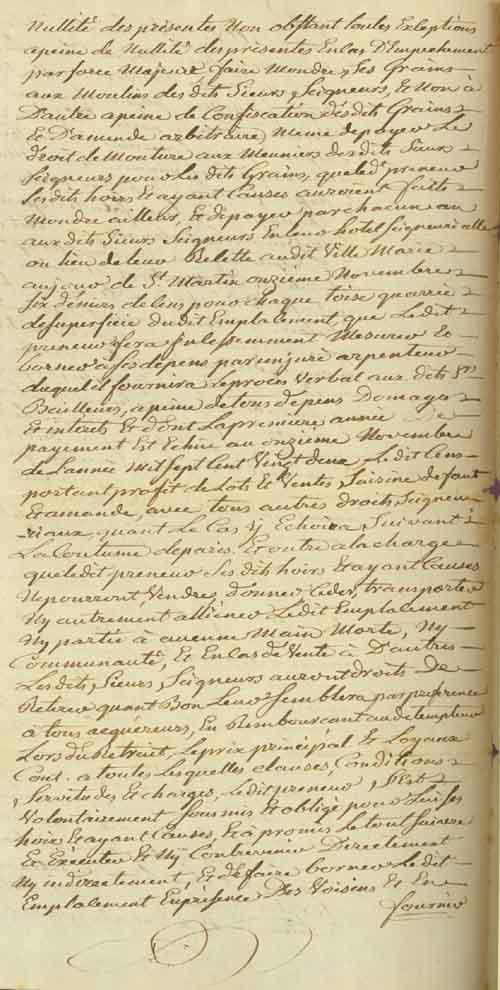 Nullité des presentes Non obstant toutes Exceptions
apeine de Nullité des presentes En cas D'Empechement
par force Majeure, faire Moudre, Ses Grains
aux Moulins des dits Sieurs, Seigneurs, Et Non à
D'autre apeine de Confiscation desdits Grains
Et D'amende arbitraire, Meme depayer Le
droit de Mouture aux Meuniers desdits Sieurs
Seigneurs pour Les dits Grains, queled. preneur
Sesdits hoirs Et ayant Causes auroient faits
Moudre ailleurs, Et depayer par chacun an
aux dits Sieurs Seigneurs En leur hotel Seigneurialle
ou lieu de leur Relette audit Ville Marie
aujour de St. Martin onziéme Novembre
Six déniers de Cens pour chaque toise quarrée
de superficie dudit Emplacement, que Ledit
preneur fera Incessemment Mesurer Et
borner à Ses depens par un juré arpenteur
duquel il fournira Le procès Verbal aux dits Srs.
Bailleurs, apeine detous depens Domages
Et interets Et dont La premiere année De
payement Est Echue au onzieme Novembre
de L'année Mil Sept Cent Vingt deux Ledit Cens
portant profit de Lots Et Ventes, Saisine defaut
Et amande, avec tous autres droits, Seigneu-
-riaux, quant Le Cas y Echoira, Suivant
La Coutume deparis. Et outre ala charge
queledit preneur Ses dits hoirs Et ayant Causes
Nepourront, Vendre, donner Ceder, transporter
Ny autrement alliéner Ledit Emplacement
Ny partie à aucune Main Morte, Ny
Communauté, Et En Cas de Vente à D'autres
Lesdits, Sieurs, Seigneurs auront droits De
Retirer quant Bon Leur Semblera par preference
à tous acquéreurs, En Rembourcant au detempteur
Lors du Retrait, Le prix principal Et Loyaux
Cout. a toutes Lesquelles clauses, Conditions
, Servitudes Et charges, Ledit preneur, S'Est
Volontairement Soumis Et obligé pour Lui Ses
hoirs Et ayant Causes, Et à promis Letout Suivre
Et Exécuter Et Ny Contrevenir Directement
Ny indirectement, Et de faire borner Ledit
Emplacement En présence Des Voisins Et En
fournir